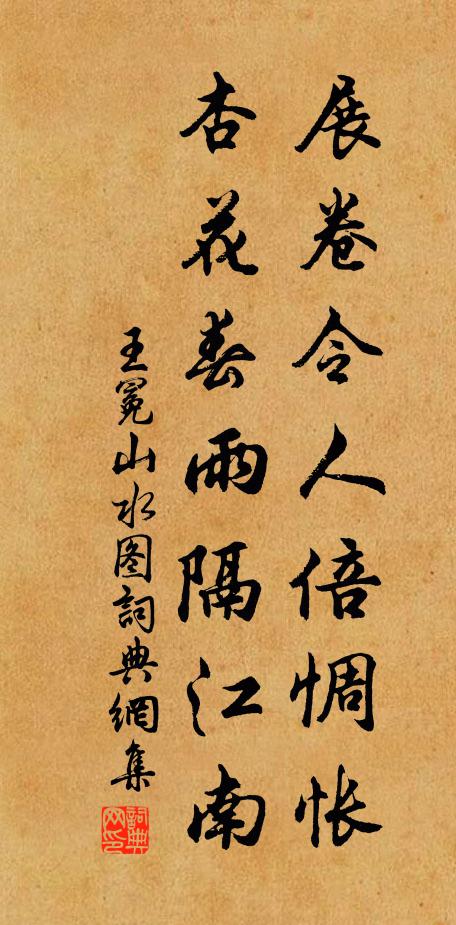 展卷令人倍惆怅
杏花春雨隔江南
王冕山水图詞典網集
詞典网印